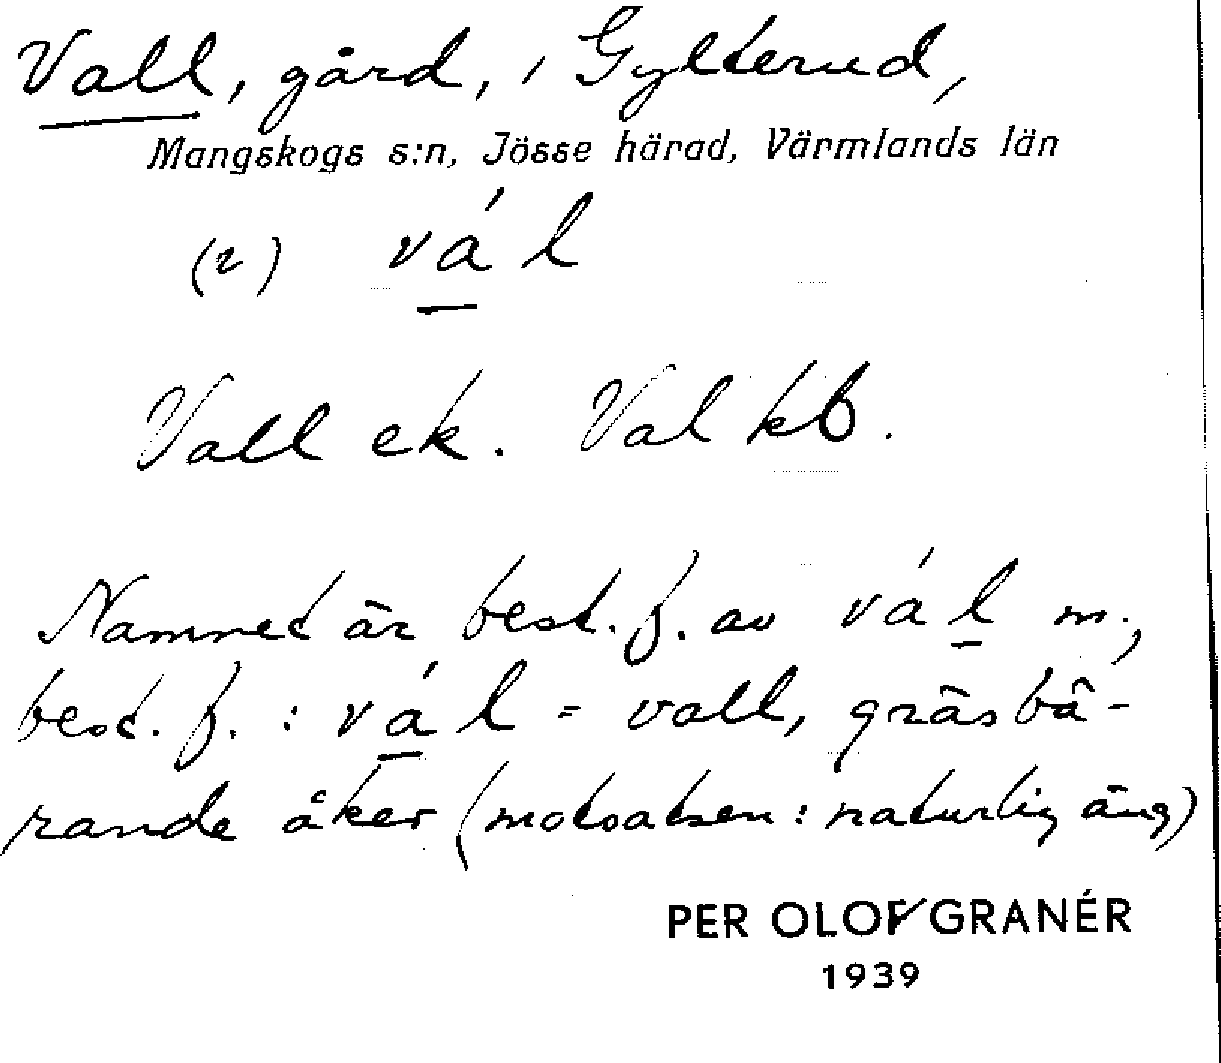 Vall, gård, i Gylterud,
Mangskogs s:n, Jösse härad, Värmlands län
(2) vá l
Vall ek. Val kb.
Namnet är best. f. av vá l m.,
best. f. : vá l = vall, gräsbä-
rande åker (motsatsen : naturlig äng)
PER OLOF GRANÉR
1939